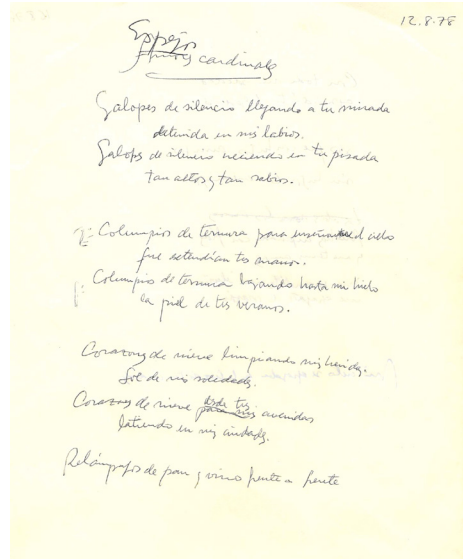 12.8.78
Espejos
cardinales
Galopes de silencio llegando a tu mirada
detenida en mis labios.
Galopes de silencio en tu pisada
tan altos y tan sabios.
Columpios de ternura para el cielo
que extendían tus manos.
Columpios de ternura bajando hasta mi hielo
la piel de tus veranos.
Corazones de nieve limpiando mis heridas.
Sol de mis soledades.
Corazones de nieve desde tus avenidas
latiendo en mis ciudades.
Relámpagos de pan y vino frente a frente